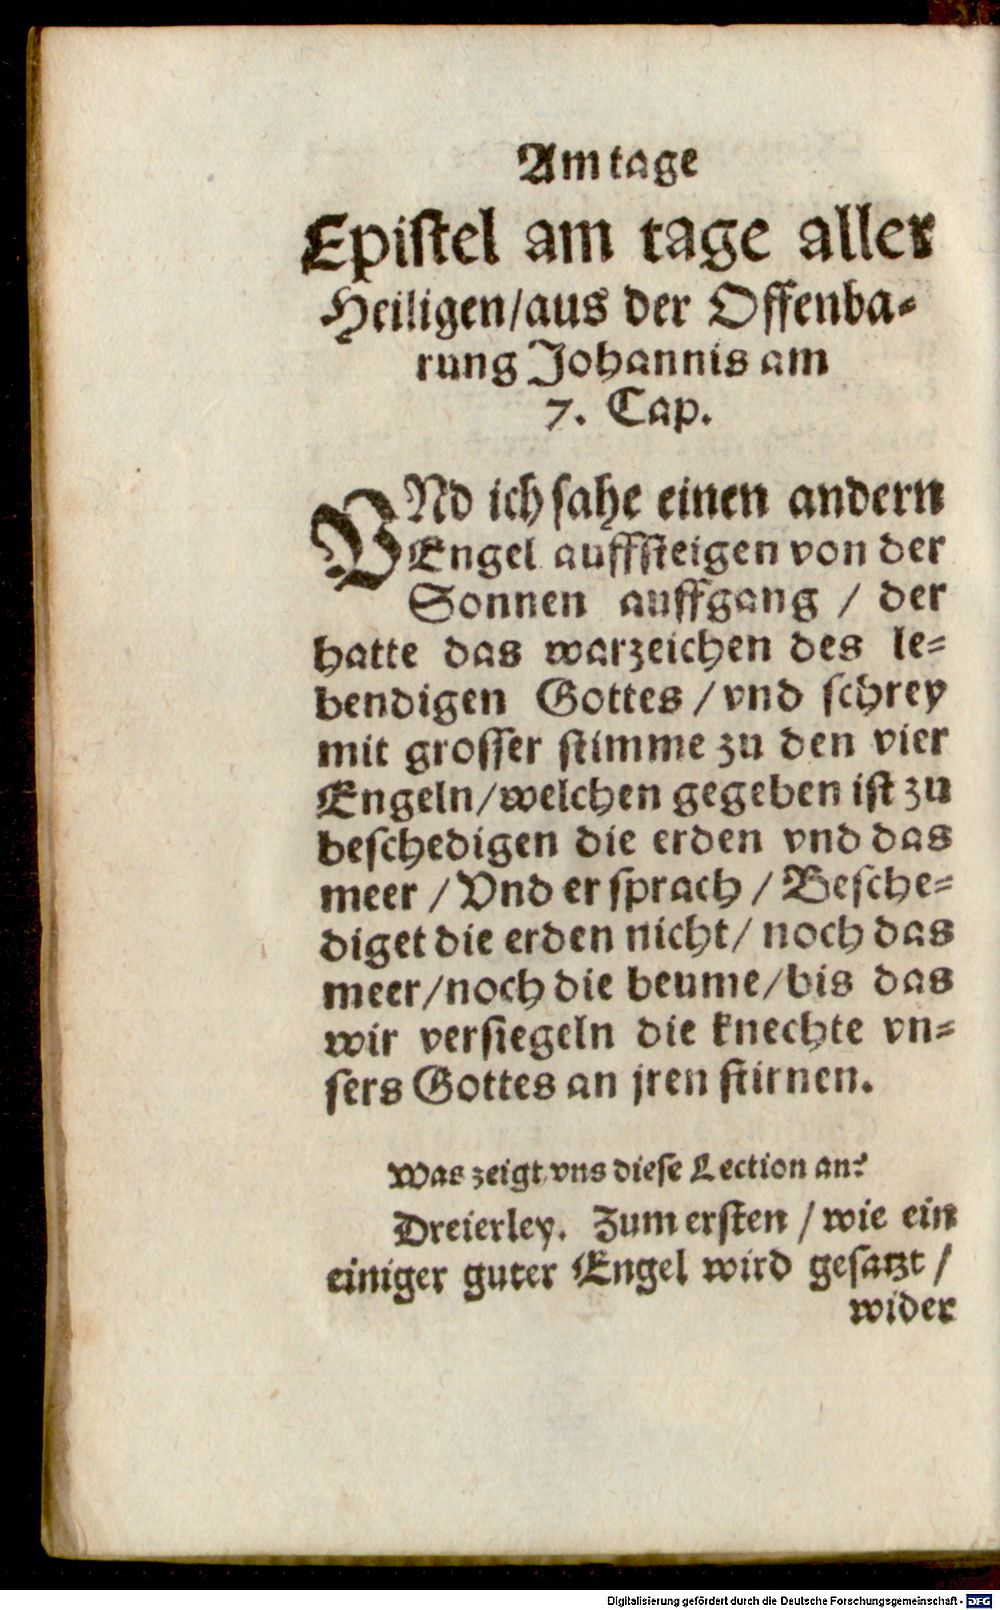 Am tage
Epistel am tage aller
Heiligen/aus der Offenba-
rung Johannis am
7. Cap.
VNd ich sahe einen andern
Engel auffsteigen von der
Sonnen auffgang / der
hatte das warzeichen des le-
bendigen Gottes / vnd schrey
mit grosser stimme zu den vier
Engeln/welchen gegeben ist zu
beschedigen die erden vnd das
meer / Vnd er sprach / Besche-
diget die erden nicht/ noch das
meer/noch die beume/bis das
wir versiegeln die knechte vn-
sers Gottes an jren stirnen.
Was zeigt vns diese Lection an?
Dreierley. Zum ersten / wie ein
einiger guter Engel wird gesatzt /
wider
Digitalisierung gefördert durch die Deutsche Forschungsgemeinschaft - DFG